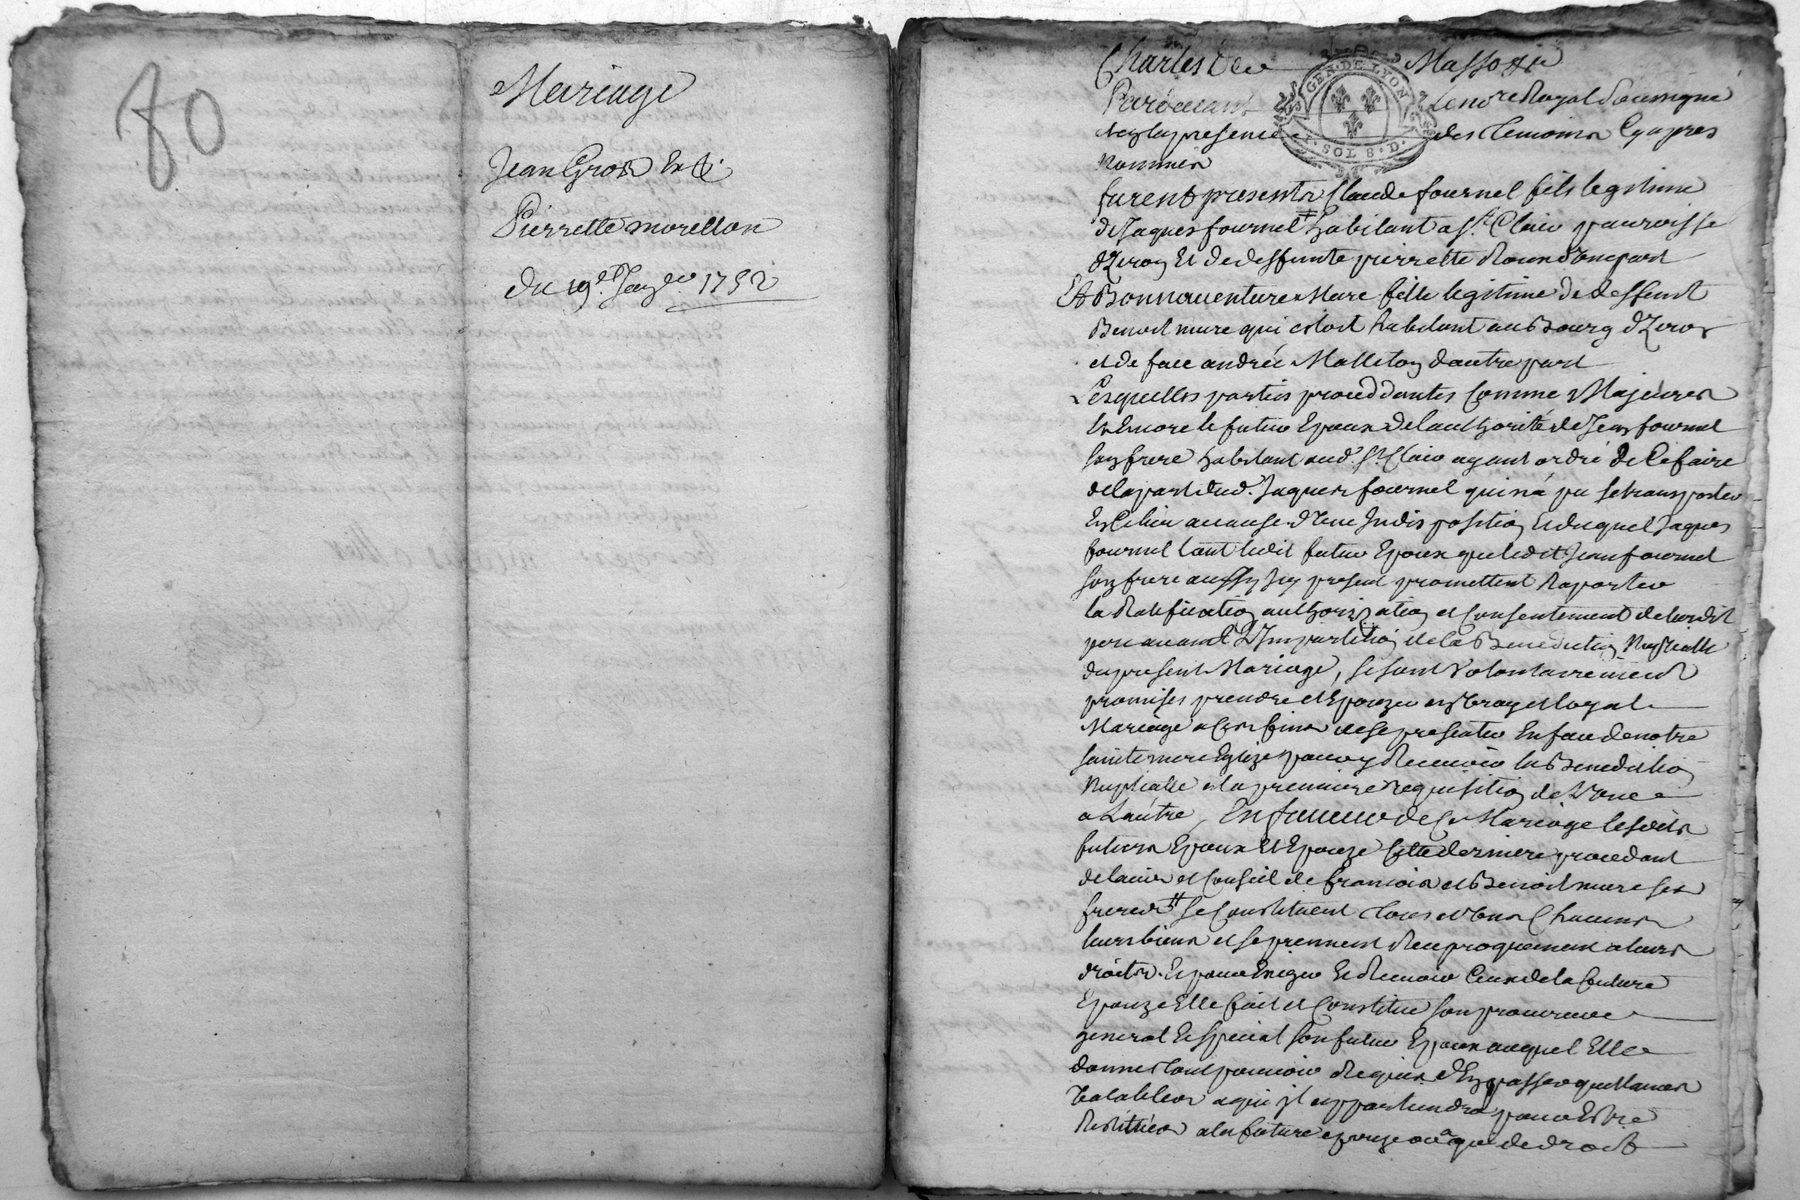 80
Mariage
Jean Gros Et
Pierrette morellon
Du 19e. Janver 1752
Charles De Massozii
GEN. DE LYON
Pardeuant Royal Soussigné
SOL 8. D.
et En presence des temoins Cy apres
nommés
furent presents Claude fournel fils legitime
de Jaques fournel habitant a St. Claire parroisse
d'Zeron Et de deffunte pierrette Roun d'une part
Et Bonnauenture Mure fille legitime de deffunt
Benoit mure qui estoit habitant au Bourg d'Zeron
et de feue andrée Malleton d'autre part
Lesquelles parties proceddantes Comme Majeures
Et Encore le futur Epoux de l'authorité de Jean fournel
son frere habitant aud. St. Claire ayant ordre de Ce faire
de la part dud. Jaques fournel qui n'a pu se transporter
En Ce lieu a cause d'Une Indisposition Et duquel Jaques
fournel tant ledit futur Epoux que ledit Jean fournel
son frere aussy Icy present promettent Raporter
la Ratification authorization et Consentement de leurdit
pere auant L'Impartition de la Benediction Nuptialle
du present Mariage, se sont Volontairement
promises prendre et Epouzer en Vray et loyal
Mariage a Ces fins de se presenter En face de notre
sainte mere Eglize pour y Receuoir la Benediction
Nuptialle a la premiere requisition de L'une
a L'autre, En faueur de Ce Mariage lesdits
futurs Epoux Et Epouze Cette derniere procedant
de l'auis et Conseil de francois et Benoit mure ses
freres se Constituent tous et Uns Chacuns
leurs biens et se prennent Reciproquement a leurs
droits. Et pour Exiger Et Receuoir Ceux de la future
Epouze Elle fait et Constitue son procureur
general Et special son futur Epoux auquel Elle
donne tout pouuoir Requis d'En passer quittances
Valables a qui il appartiendra pour Estre
Restitués a la future epouze ou a qui de droit